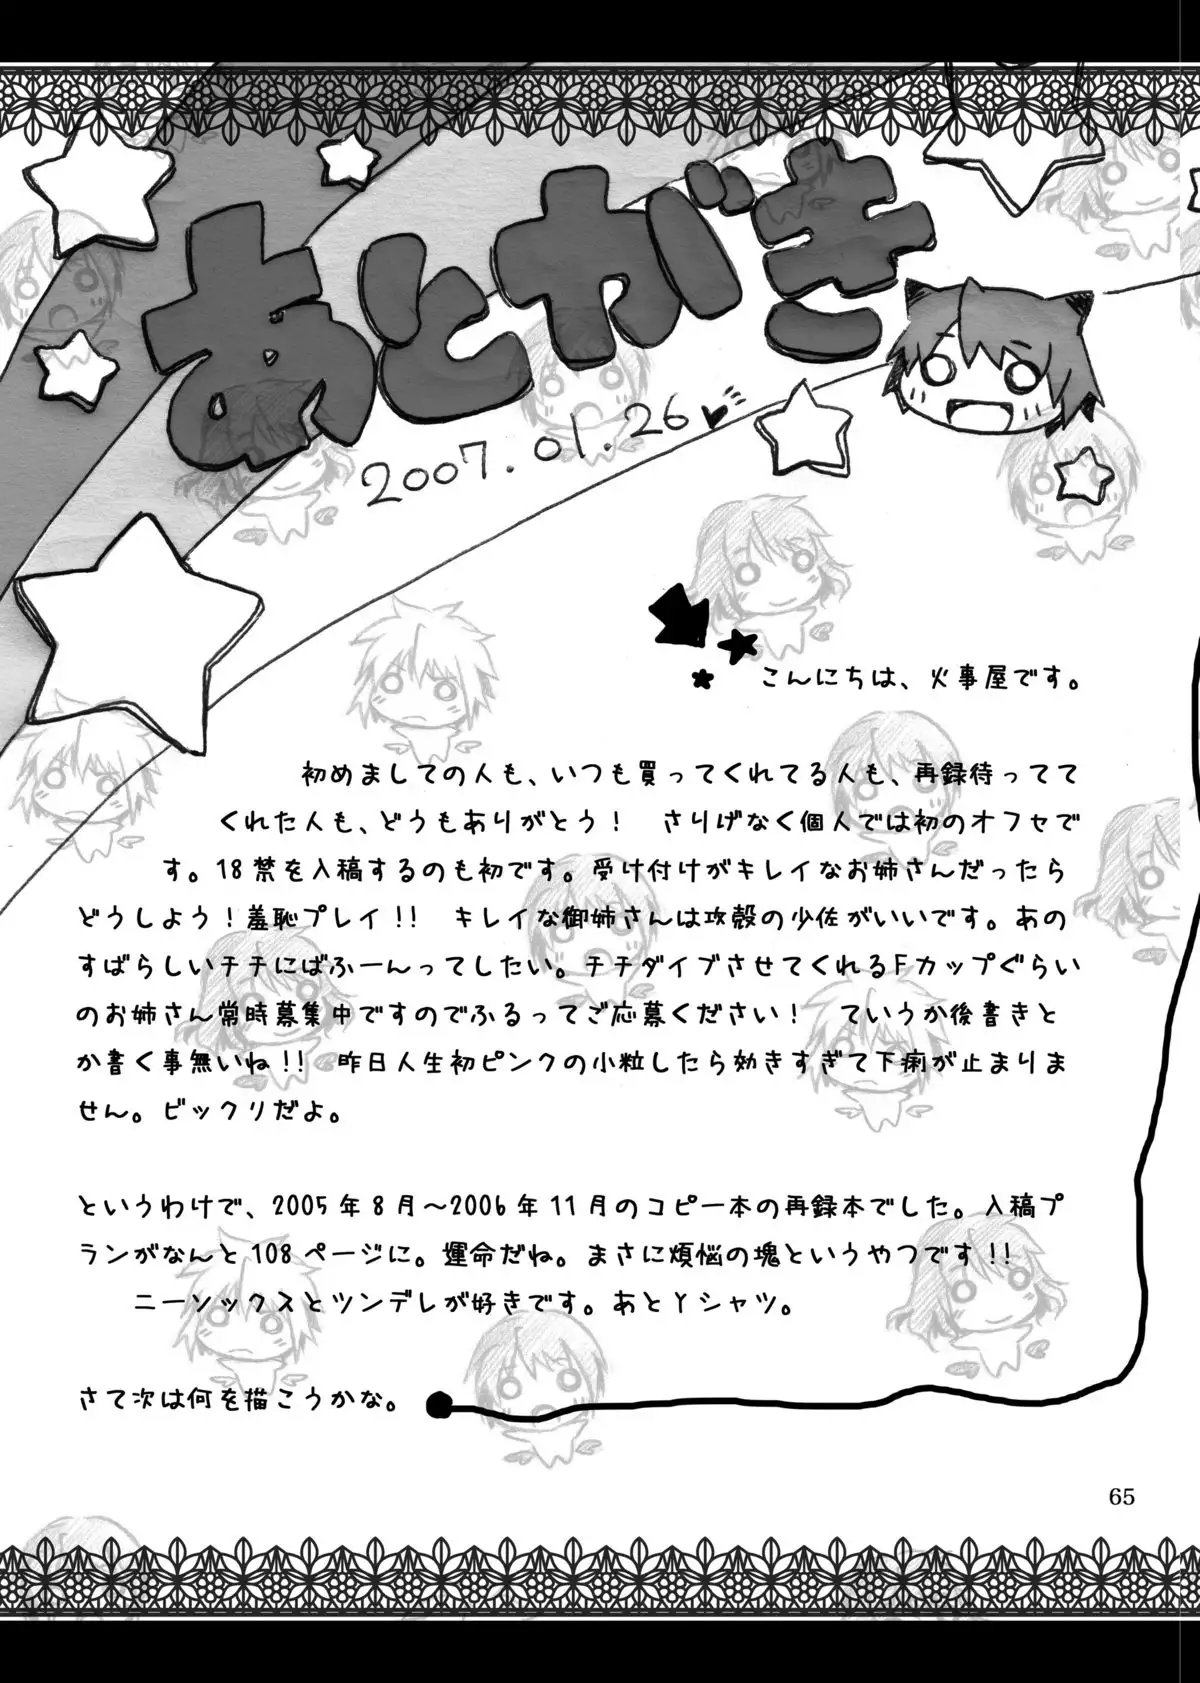 あとがき
2007.01.26
こんにちは、火事屋です。
初めましての人も、いつも買ってくれてる人も、再録待ってて
くれた人も、どうもありがとう！　さりげなく個人では初のオフセで
す。18禁を入稿するのも初です。受け付けがキレイなお姉さんだったら
どうしよう！羞恥プレイ!!　キレイな御姉さんは攻殻の少佐がいいです。あの
すばらしいチチにばふーんってしたい。チチダイブさせてくれるFカップぐらい
のお姉さん常時募集中ですのでふるってご応募ください！　ていうか後書きと
か書く事無いね!!　昨日人生初ピンクの小粒したら効きすぎて下痢が止まりま
せん。ビックリだよ。
というわけで、2005年8月～2006年11月のコピー本の再録本でした。入稿プ
ランがなんと108ページに。運命だね。まさに煩悩の塊というやつです!!
ニーソックスとツンデレが好きです。あとYシャツ。
さて次は何を描こうかな。
65